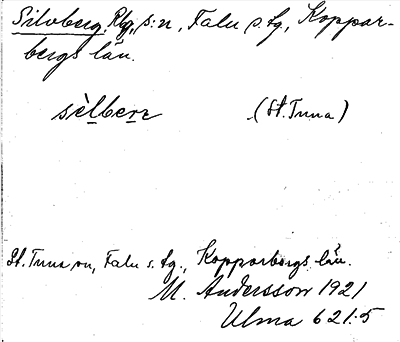 Silvberg, Rlg, s:n, Falu s. fg, Koppar-
bergs län.
sèlberr (St. Tuna)
St. Tuna sn, Falu s. fg., Kopparbergs län.
M. Andersson 1921
Ulma 621:5